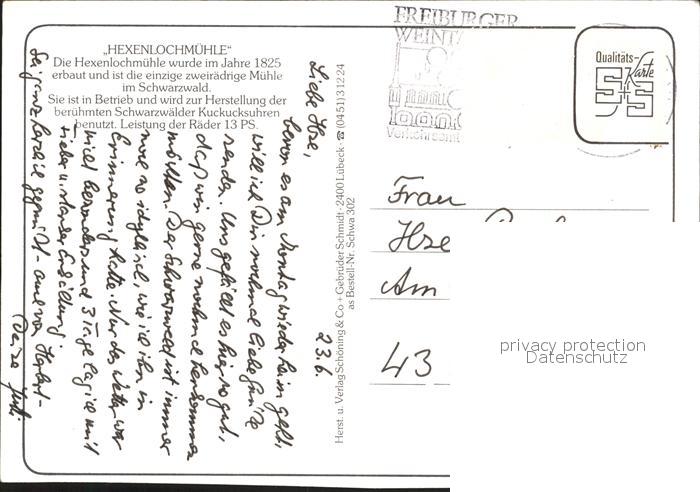 „HEXENLOCHMÜHLE“
Die Hexenlochmühle wurde im Jahre 1825
erbaut und ist die einzige zweirädrige Mühle
im Schwarzwald.
Sie ist in Betrieb und wird zur Herstellung der
berühmten Schwarzwälder Kuckucksuhren
benutzt. Leistung der Räder 13 PS.
23.6.
Liebe Ilse,
bevor es am Montag wieder heim geht,
will ich Dir nochmal liebe Grüße
senden. Uns gefällt es hier so gut,
daß wir gerne nochmal herkommen
möchten. Der Schwarzwald ist immer
noch so idyllisch, wie ich ihn in
Erinnerung hatte. Nur das Wetter war
nicht besonders und 3 Tage lag ich mit
Fieber u. starker Erkältung.
Sei ganz herzlich gegrüßt - auch von Herbert -
Deine
Herst. u. Verlag Schöning & Co + Gebrüder Schmidt · 2400 Lübeck · ☎ (0451) 31224
as Bestell-Nr. Schwa 302
FREIBURGER
WEINT
Verkehrsamt
Qualitäts-
Karte
S+S
Frau
Ilse
Am
43
privacy protection
Datenschutz